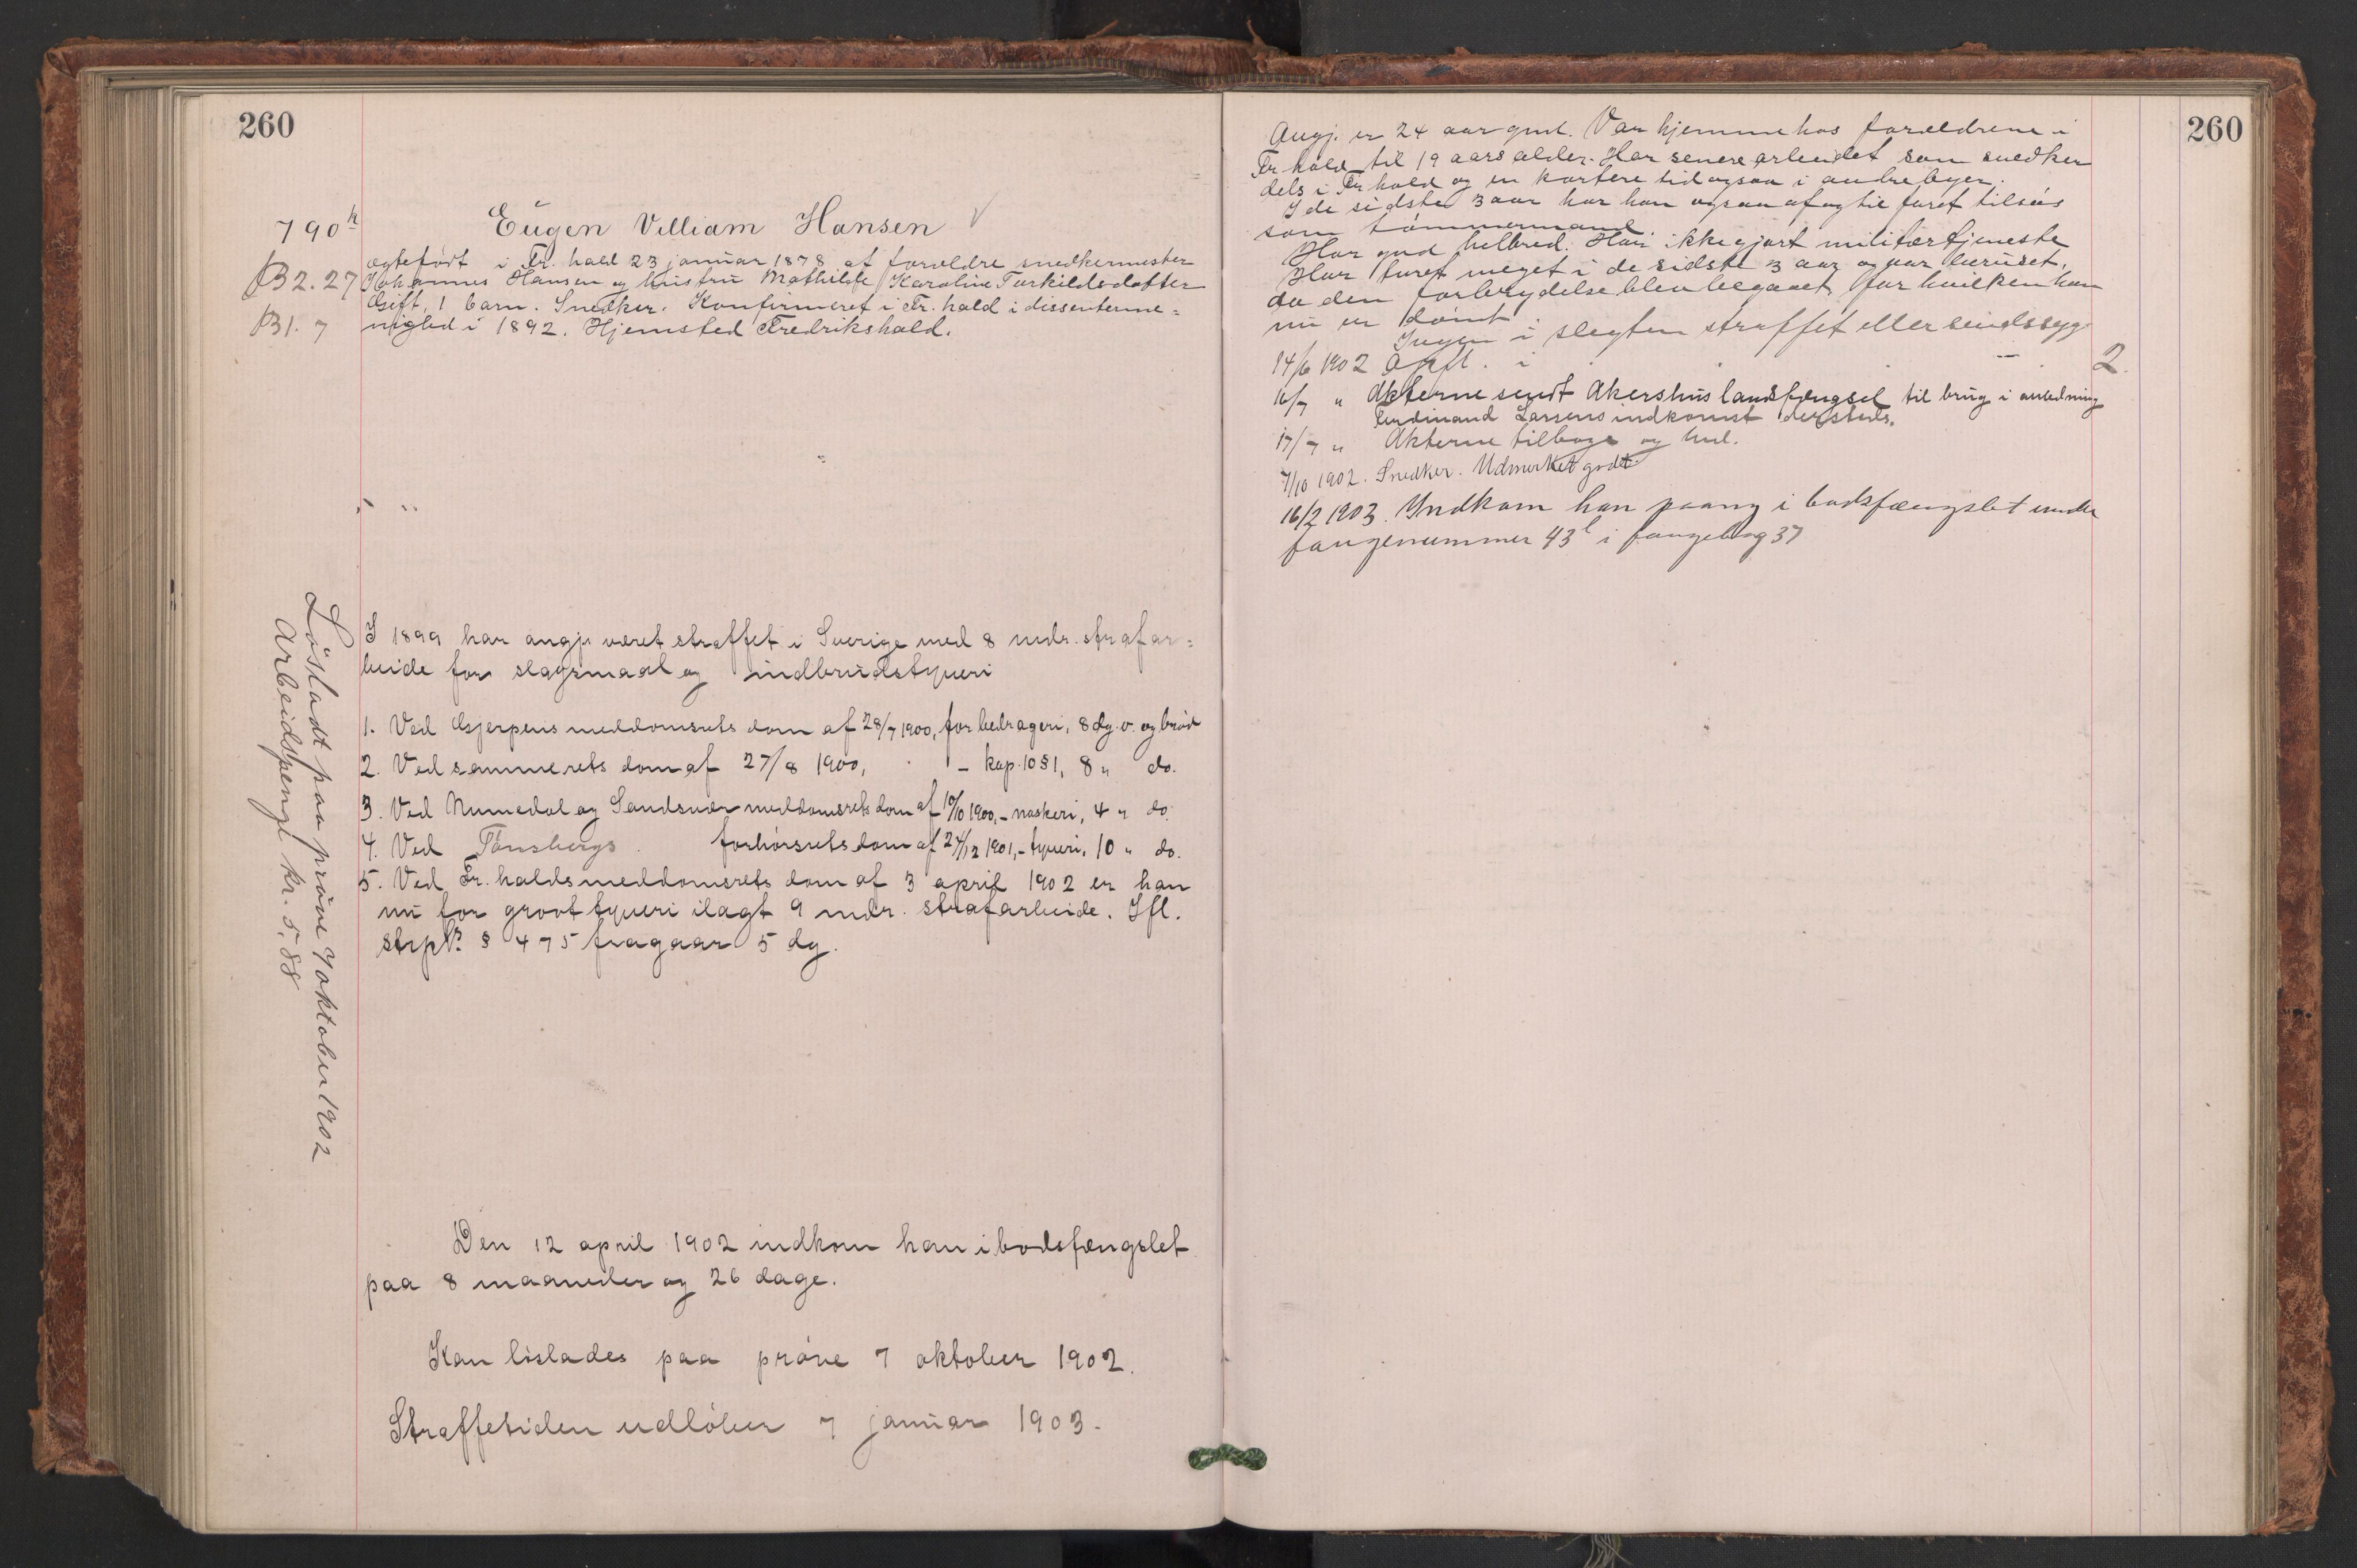 260
790h
Eugen Villiam Hansen √
B 2. 27
B 1. 7
ægtefødt i Fr. hald 23 januar 1878 af forældre snedkermester
Johannes Hansen og hustru Mathilde Karoline Torkildsdotter
Gift, 1 barn. Snedker. Konfirmeret i Fr. hald i dissenterme-
nighed i 1892. Hjemsted Fredrikshald.
I 1899 har angj. været straffet i Sverige med 8 mdr. strafar-
beide for slagsmaal og indbrudstyveri
1. Ved Gjerpens meddomsrets dom af 28/7 1900, for bedrageri, 8 dg. v. og brød
2. Ved samme rets dom af 27/8 1900, " - kap. 10 § 1, 8 " do.
3. Ved Numedal og Sandsvær meddomsrets dom af 10/10 1900, - naskeri, 4 " do.
4. Ved Tønsbergs forhørsrets dom af 24/12 1901, - tyveri, 10 " do.
5. Ved Fr. halds meddomsrets dom af 3 april 1902 er han
nu for grovt tyveri ilagt 9 mdr. strafarbeide. Ifl.
strpl. § 475 fragaar 5 dg.
Den 12 april 1902 indkom han i bodsfængslet
paa 8 maaneder og 26 dage.
Kan løslades paa prøve 7 oktober 1902.
Straffetiden udløber 7 januar 1903.
Løsladt paa prøve 7 oktober 1902
Arbeidspenge kr. 5,88
260
Angj. er 24 aar gml. Var hjemme hos forældrene i
Fr hald til 19 aars alder. Har senere arbeidet som snedker
dels i Fr hald og en kortere tid ogsaa i andre byer.
I de sidste 3 aar har han ogsaa af og til faret tilsøs
som tømmermand.
Har god helbred. Har ikke gjort militærtjeneste
Har turet meget i de sidste 3 aar og var beruset,
da den forbrydelse blev begaaet, for hvilken han
nu er dømt.
Ingen i slegten straffet eller sindssyg
14/6 1902 Opfl. i - 2.
16/7 " Akterne sendt Akershus landsfængsel til brug i anledning
Ferdinand Larsens indkomst dersteds.
17/7 " Akterne tilbage og hnl.
7/10 1902. Snedker. Udmerket godt.
16/2 1903. Indkom han paany i bodsfængslet under
fangenummer 43l i fangebog 37